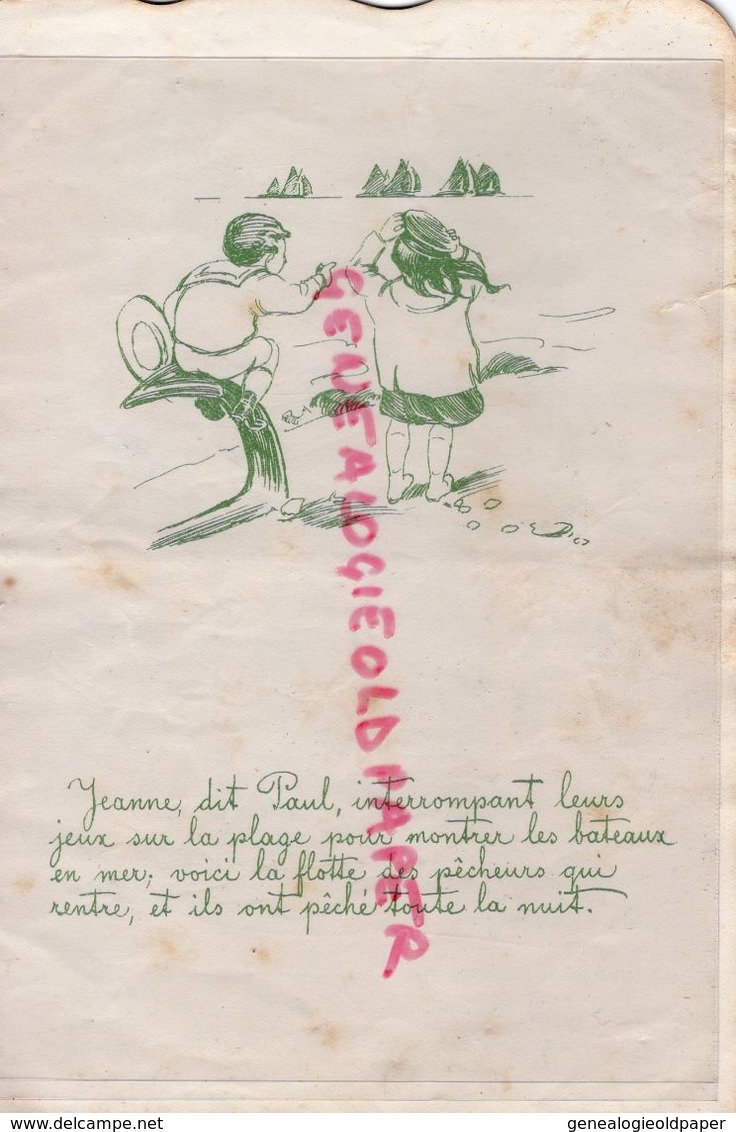 GENEALOGIEOLDPAPER
Jeanne, dit Paul, interrompant leurs
jeux sur la plage pour montrer les bateaux
en mer; voici la flotte des pêcheurs qui
rentre, et ils ont pêché toute la nuit.
delcampe.net
genealogieoldpaper